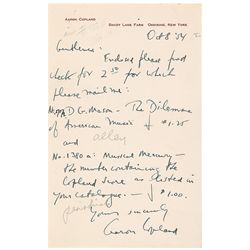 AARON COPLAND SHADY LANE FARM OSSINING, NEW YORK
Oct 8 '54
Gentlemen:
Enclosed please find
check for 2 for which
please mail me:
D G. Mason - The Dilemma
of American Music $1.25
and
No. 1380 a: Musical Mercury -
the number containing the
Copland score as listed in
your Catalogue - $1.00.
Yours sincerely
Aaron Copland